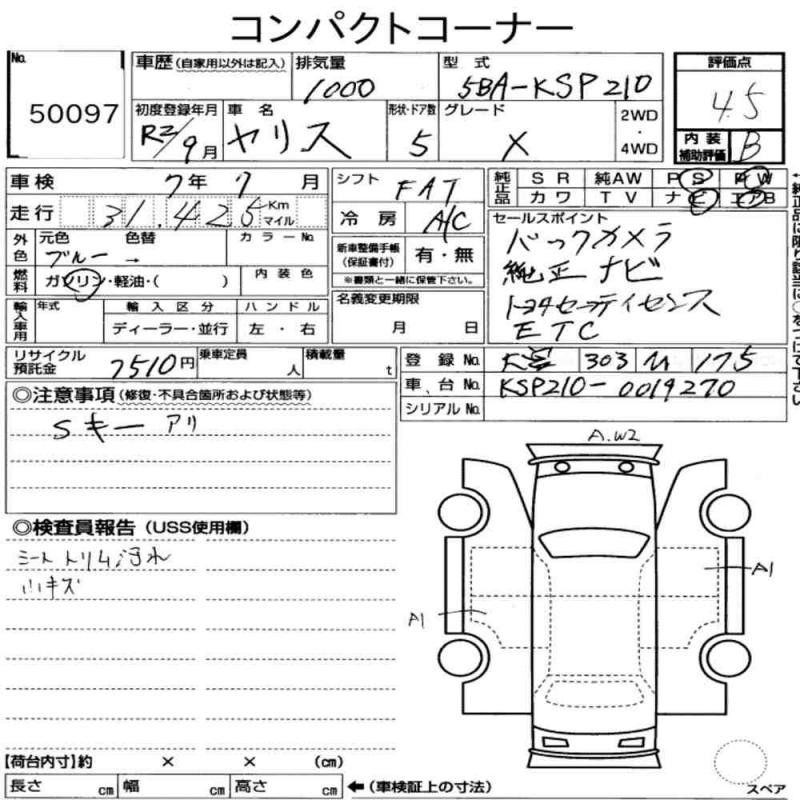 コンパクトコーナー
No. 50097
車歴 (自家用以外は記入) 排気量 1000 型式 5BA-KSP210 評価点 4.5
初度登録年月 R2/9月 車名 ヤリス 形状・ドア数 5 グレード X 2WD・4WD 内装補助評価 B
車検 7年 9月 シフト FAT 純正品 SR 純AW PS PW
走行 31,425 Km マイル 冷房 A/C カワ TV ナビ エアB
外色 元色 ブルー 色替 → カラーNo. 新車整備手帳(保証書付) 有・無 ※書類と一緒に保管下さい。
セールスポイント
バックカメラ
純正ナビ
トヨタセーフティセンス
ETC
燃料 ガソリン・軽油・( ) 内装色 名義変更期限 月 日
輸入車用 年式 輸入区分 ディーラー・並行 ハンドル 左・右
リサイクル預託金 7510円 乗車定員 人 積載量 t 登録No. 303 175
車台No. KSP210-0019270
シリアルNo.
◎注意事項 (修復・不具合箇所および状態等)
Sキー アリ
A.W2
◎検査員報告 (USS使用欄)
シートトリム汚れ
小キズ
A1
A1
【荷台内寸】約 × × (cm)
長さ cm 幅 cm 高さ cm ←(車検証上の寸法)
スペア